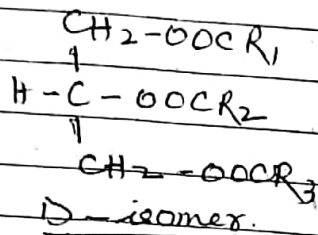 CH2-OOCR1
H-C-OOCR2
CH2-OOCR3
D-isomer.